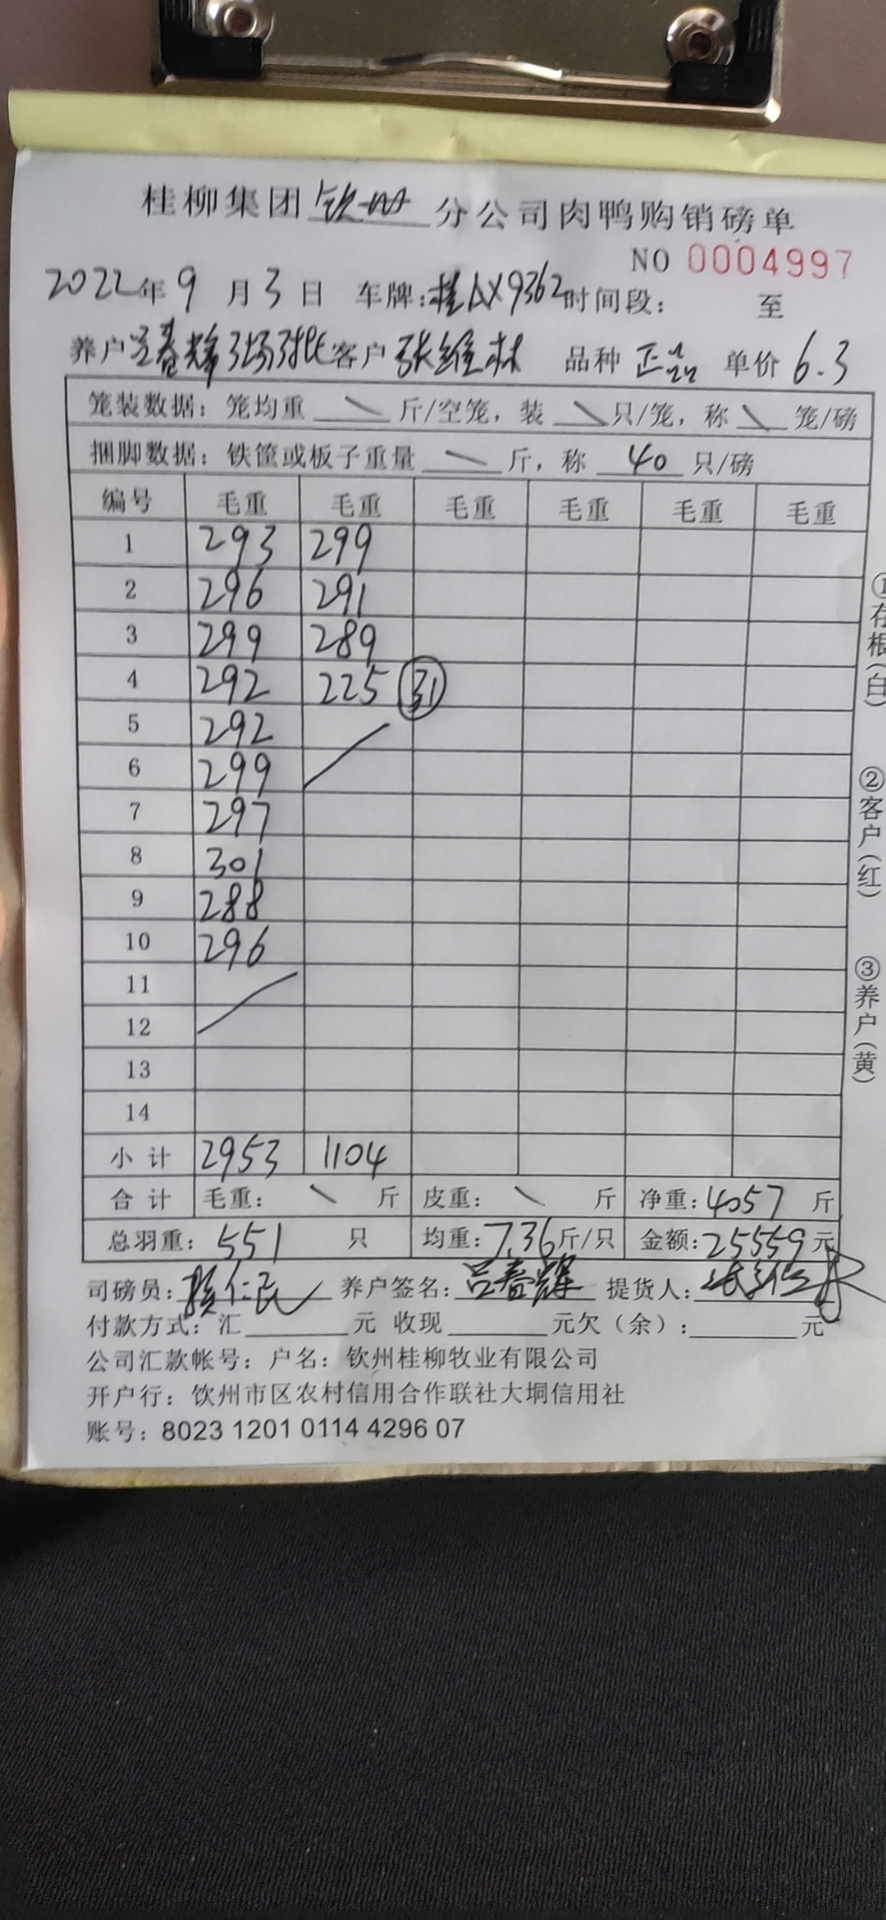 桂柳集团 钦州 分公司肉鸭购销磅单
NO 0004997
2022年 9 月 3 日 车牌:桂AX9362 时间段: 至
养户 吕春辉 3场3批 客户 张维林 品种 正品 单价 6.3
笼装数据: 笼均重 \ 斤/空笼, 装 \ 只/笼, 称 \ 笼/磅
捆脚数据: 铁筐或板子重量 \ 斤, 称 40 只/磅
编号 毛重 毛重 毛重 毛重 毛重 毛重
1 293 299
2 296 291
3 299 289
4 292 225 31
5 292
6 299
7 297
8 301
9 288
10 296
11
12
13
14
小计 2953 1104
合计 毛重: \ 斤 皮重: \ 斤 净重: 4057 斤
总羽重: 551 只 均重: 7.36 斤/只 金额: 25559 元
司磅员: 仁民 养户签名: 吕春辉 提货人: 张维林
付款方式: 汇 元 收现 元欠(余): 元
公司汇款帐号: 户名: 钦州桂柳牧业有限公司
开户行: 饮州市区农村信用合作联社大垌信用社
账号: 8023 1201 0114 4296 07
①存根(白)
②客户(红)
③养户(黄)